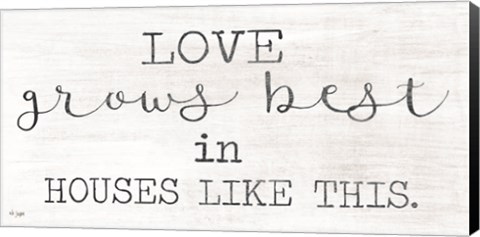 LOVE
grows best
in
HOUSES LIKE THIS.